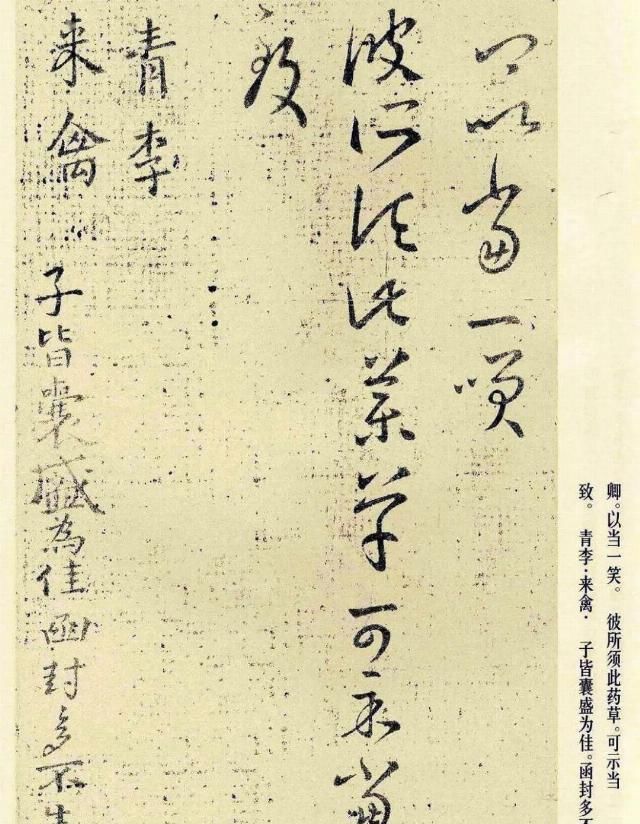 卿。以当一笑。　彼所须此药草。可示当
致。　青李·来禽·　子皆囊盛为佳。函封多不
卿以當一咲
彼所須此藥草可示當
致
青李
来禽 子皆囊盛為佳函封多不生